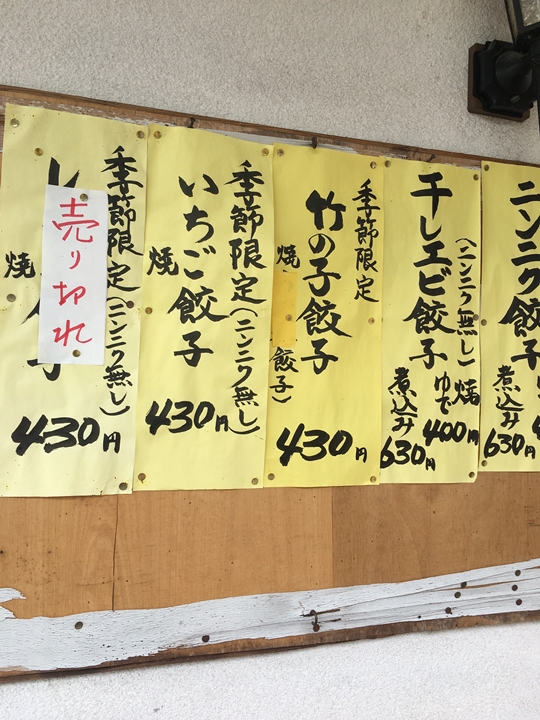 ニンニク餃子
煮込み
630円
干しエビ餃子
(ニンニク無し)
焼
ゆで
400円
煮込み
630円
季節限定
竹の子餃子
焼
餃子)
430円
季節限定(ニンニク無し)
いちご餃子
焼
430円
季節限定(ニンニク無し)
売り切れ
焼
430円